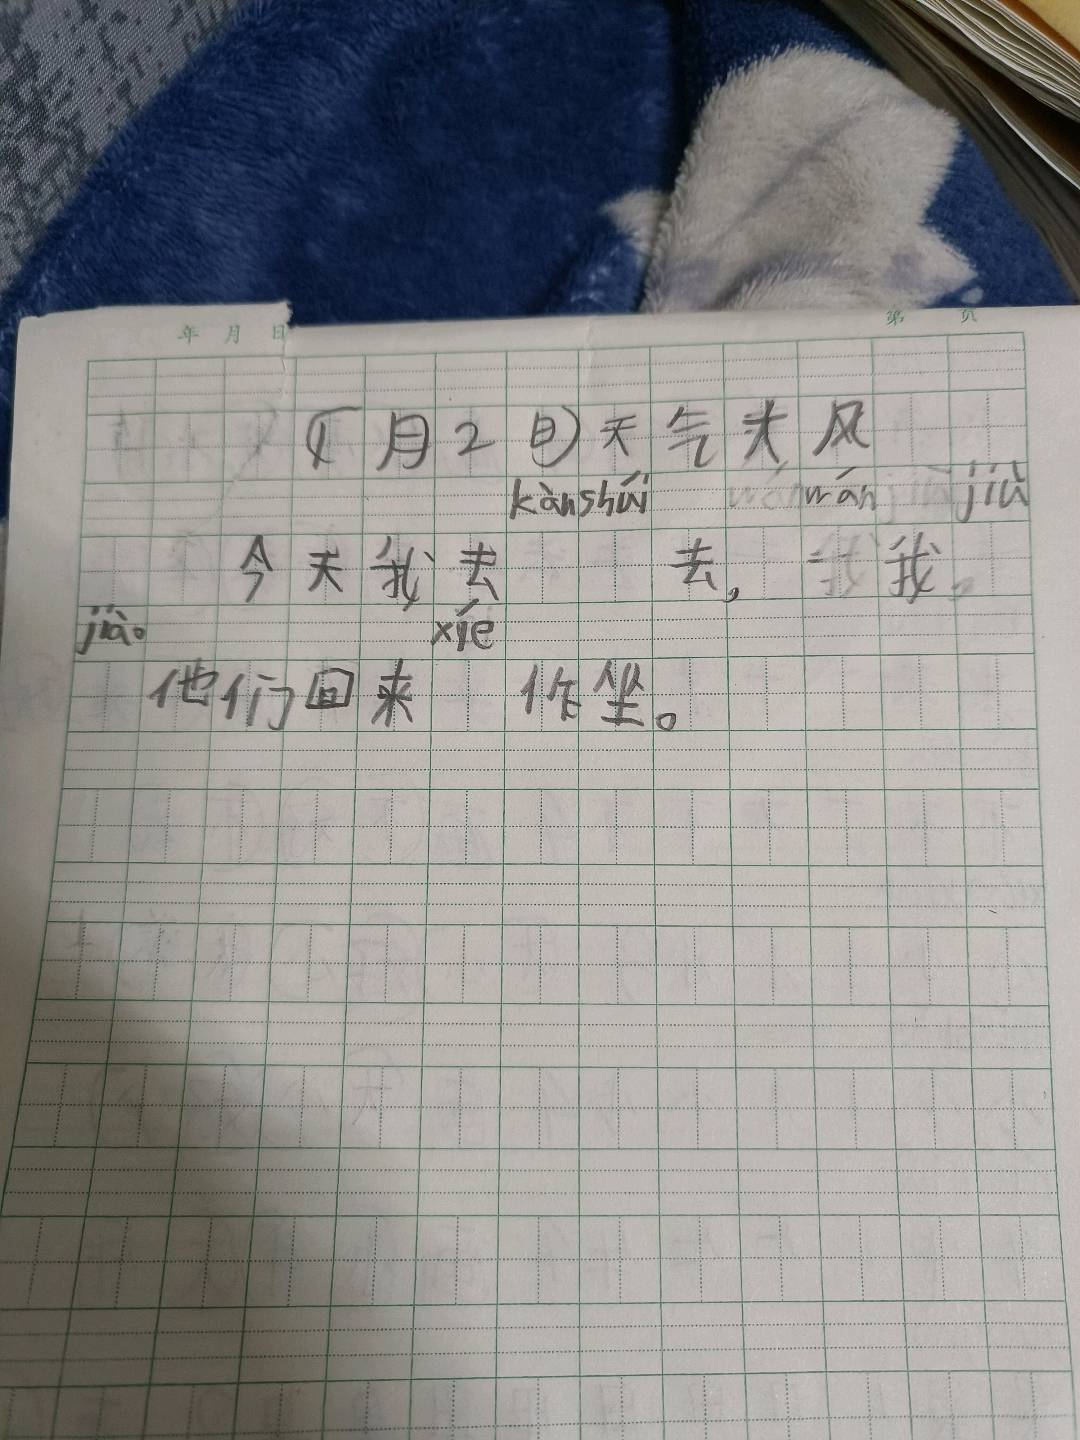 年 月 日
第 页
(1月2日)天气大风
kànshúi wán jiù
今天我去 去,我
jiào。 xíe
他们回来 作坐。